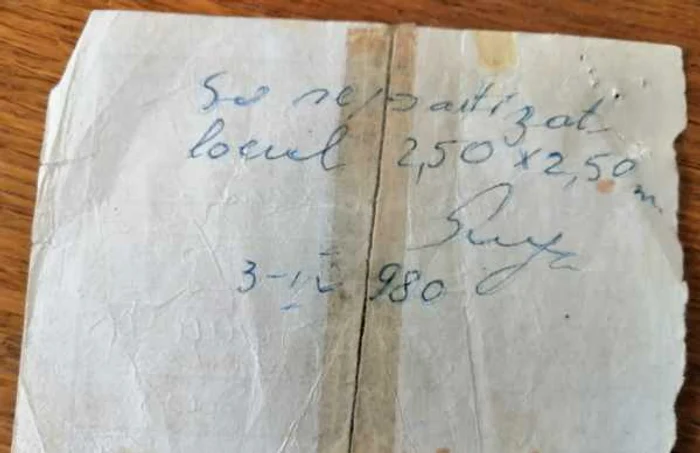 So repartizat
locul 2,50 x 2,50 m
3-IV 980